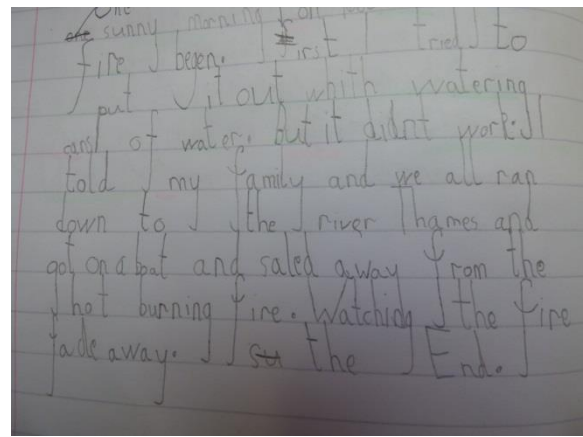 One
sunny morning
fire I began. I first I tried to
put it out whith watering
cans of water. but it didnt work. I
told my family and we all ran
down to the river Thames and
got on a boat and saled away from the
hot burning fire. Watching the fire
fade away. the End.